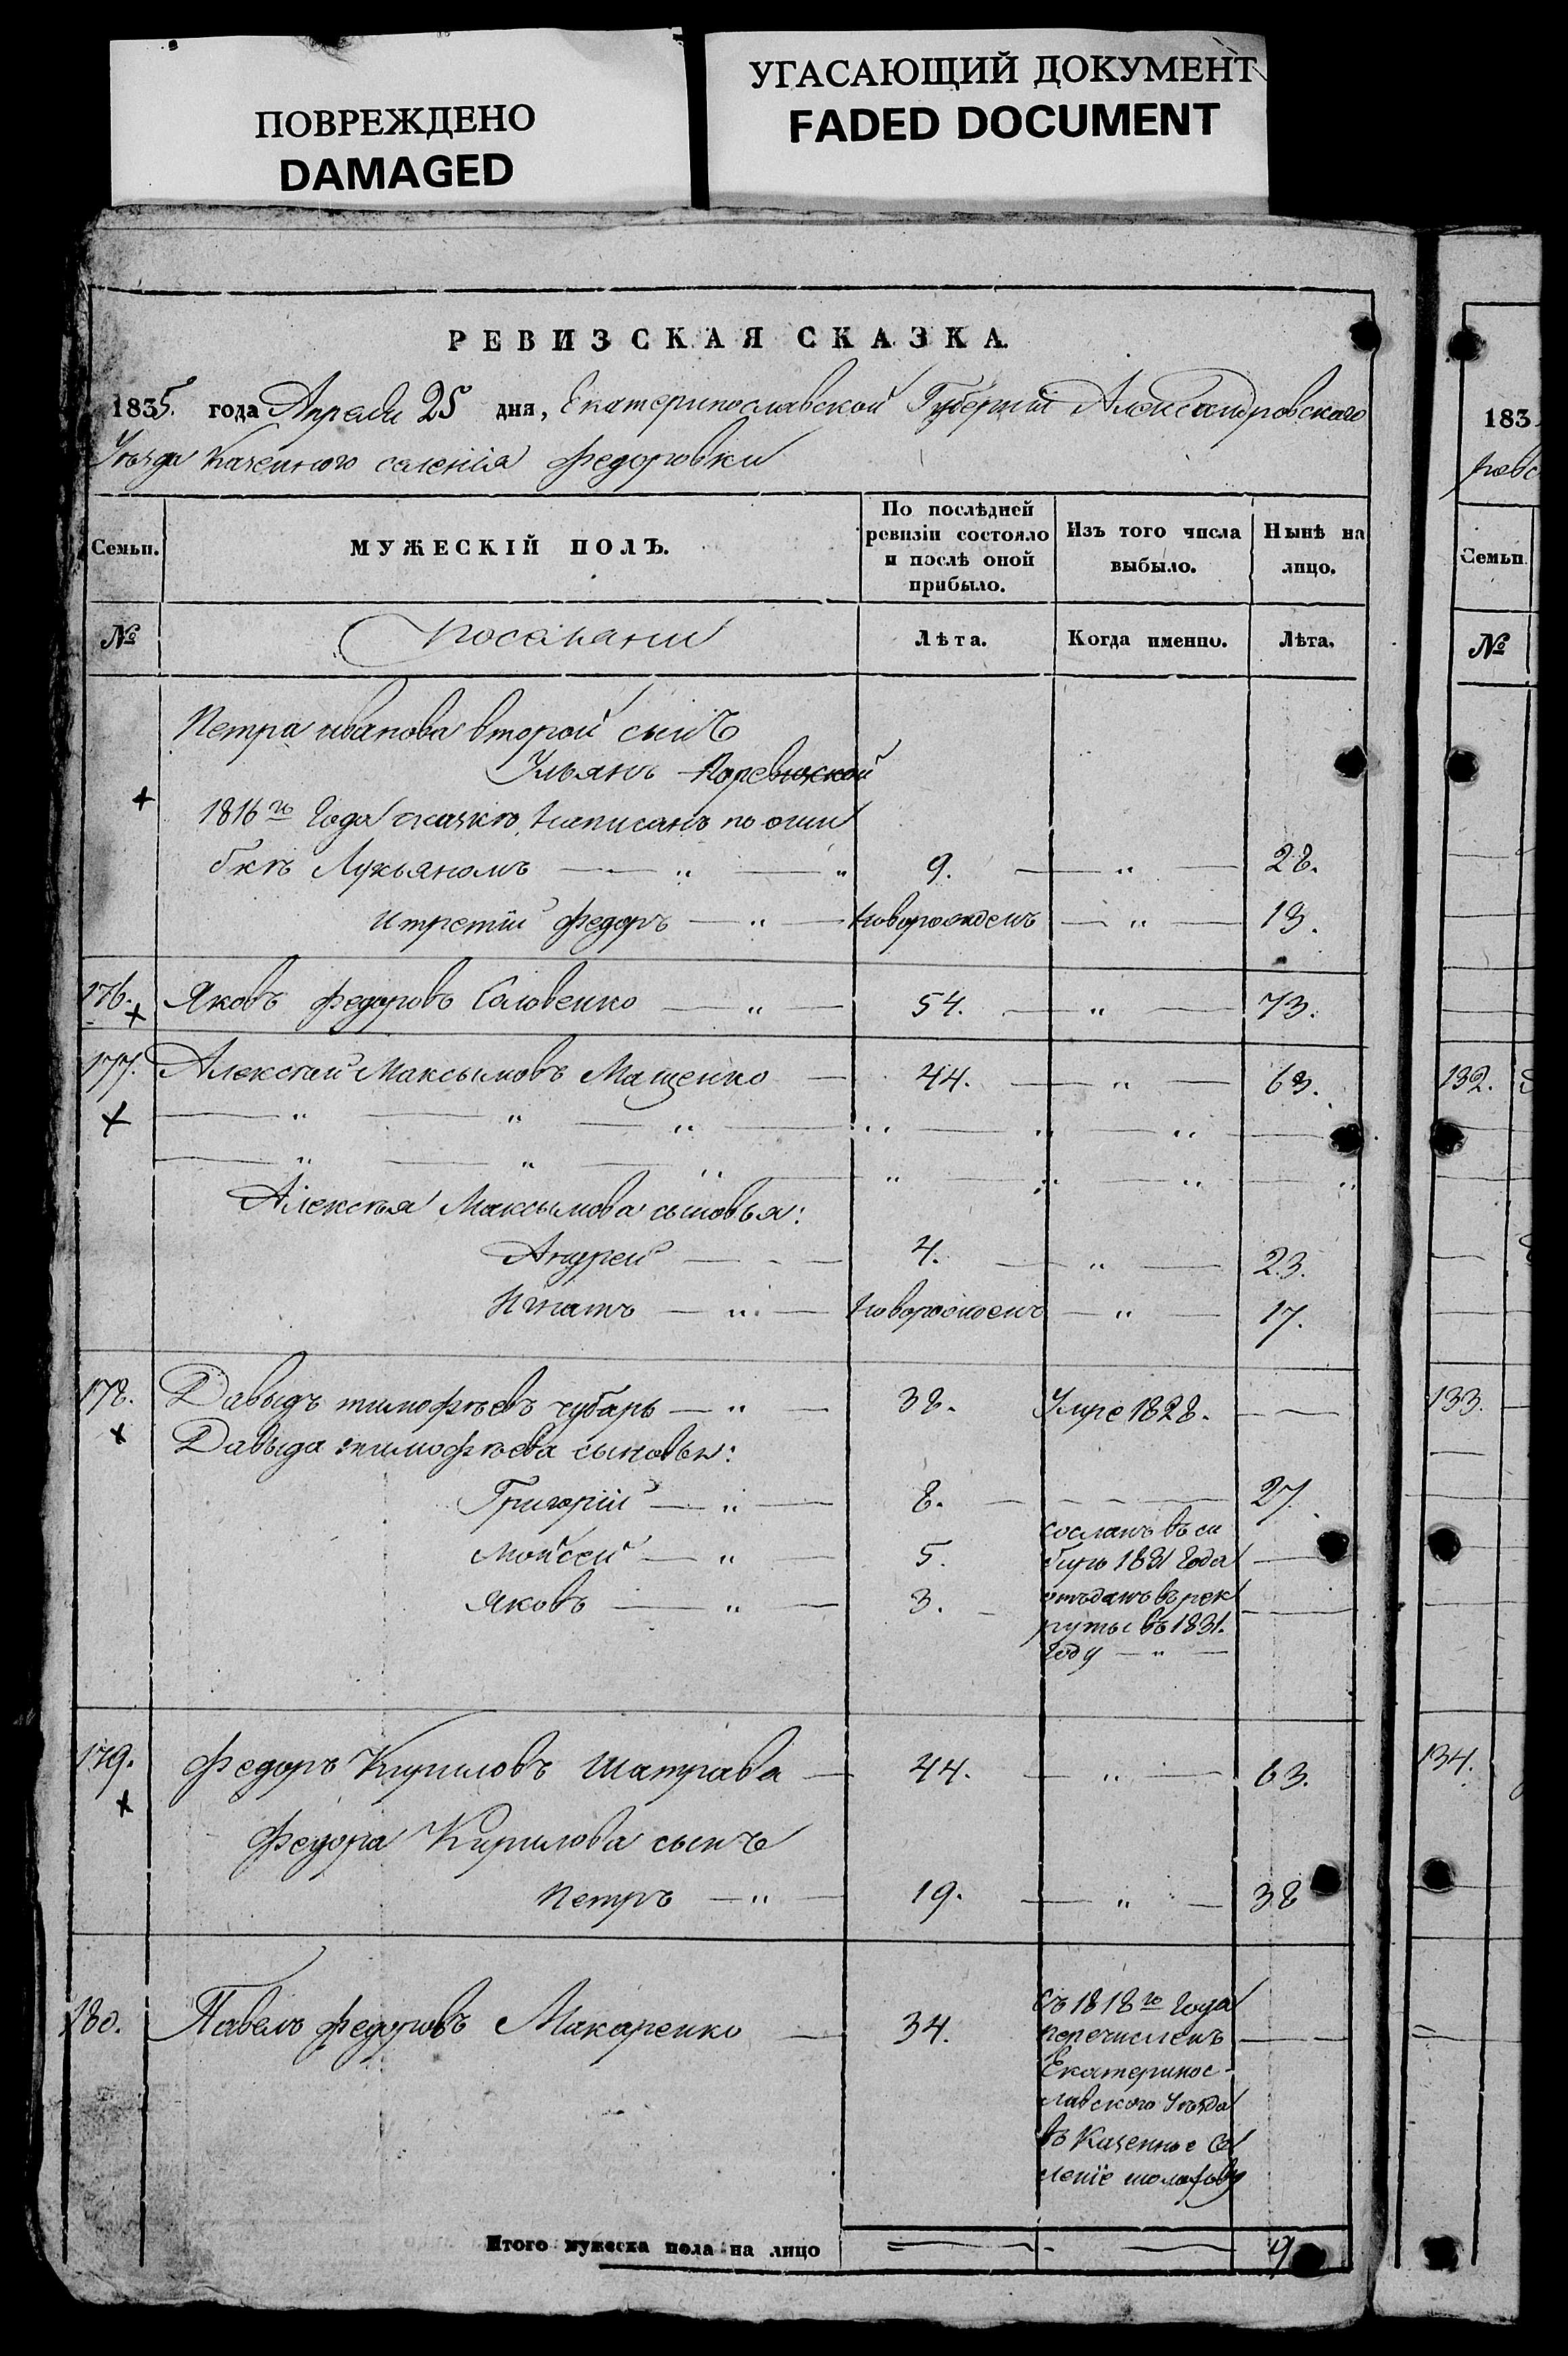 ПОВРЕЖДЕНО
DAMAGED
УГАСАЮЩИЙ ДОКУМЕНТ
FADED DOCUMENT
РЕВИЗСКАЯ СКАЗКА
1835. года Апреля 25 дня, Екатеринославской Губернии Александровского
Уѣзда Казенного селенія Федоровки
Семьи. МУЖЕСКІЙ ПОЛЪ. По послѣдней ревизіи состояло и послѣ оной прибыло. Изъ того числа выбыло. Нынѣ на лицо.
№ Лѣта. Когда именно. Лѣта.
Петра иванова второй сынъ
Ульянъ
1816го года сказкѣ написанъ по оши
бкѣ Лукьяномъ — " — " 9. — " — 28.
Итретій федоръ — " — Новорожденъ — " — 18.
176. Яковъ федоровъ Соловенко — " — 54. — " — 73.
177. Алексѣй Максымовъ Мащенко — 44. — " — 63.
Алексѣя Максымова сыновья:
Андрей — 4. — " — 23.
Игнатъ — " — Новорожденъ — " — 17.
178. Давыдъ тимофѣевъ чубарь — " — 38. Умре 1828. — —
Давыда тимофѣева сыновья:
Григорій — " — 8. — 27
Мойсей — " — 5. сосланъ въ си
бирь 1831 года —
Яковъ — " — 3. — отъданъ въ рек
руты въ 1831.
году — " —
179. федоръ Кириловъ Шатрава — 44. — " — 63.
федора Кирилова сынъ
Петръ — " — 19. — " — 38
180. Павелъ федоровъ Макаренко — 34. Съ 1818го года
перечисленъ — —
Екатеринос-
лавского уѣзда
въ Казенное се
леніе
Итого мужеска пола на лицо 9
183
Семьи
№
132.
133.
134.